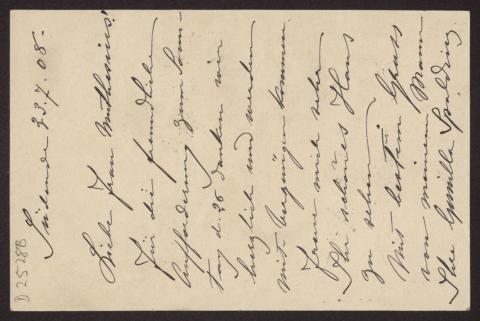 Südende 23.7.08.
Liebe Frau Muthesius!
Für die freundliche
Aufforderung zum Sonn-
tag d. 26 danken wir
herzlich und werden
mit Vergnügen kommen.
Freue mich sehr
Ihr schönes Haus
zu sehen.
Mit bestem Gruss
von meinem Mann
Ihre Gunilla Spalding
D 2528B